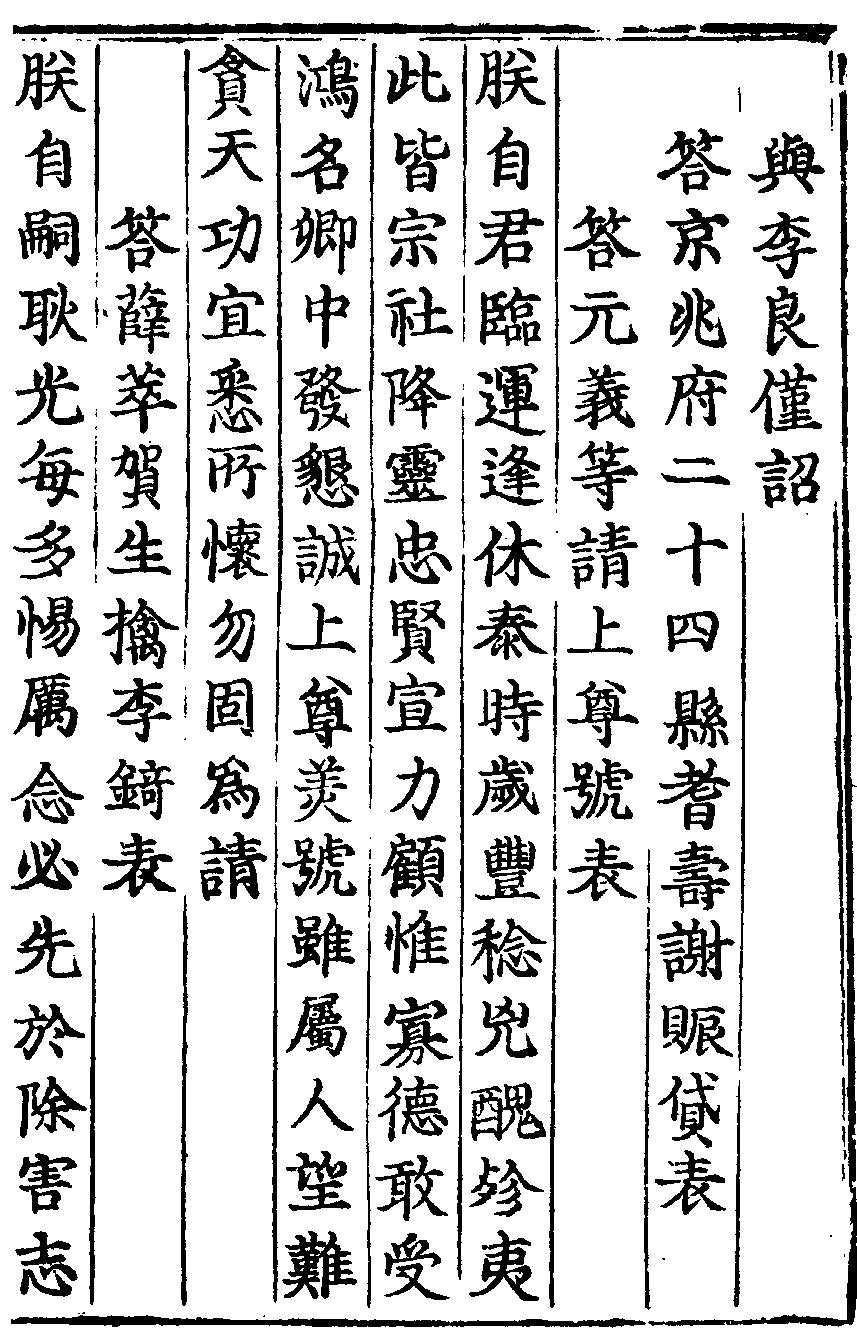 與李良僅詔
答京兆府二十四縣耆壽謝賑貸表
答元義等請上尊號表
朕自君臨運逢休泰時歲豐稔兇醜殄夷
此皆宗社降靈忠賢宣力顧惟寡德敢受
鴻名卿中發懇誠上尊美號雖屬人望難
貪天功宜悉所懷勿固爲請
答薛萃賀生擒李錡表
朕自嗣耿光每多惕厲念必先於除害志